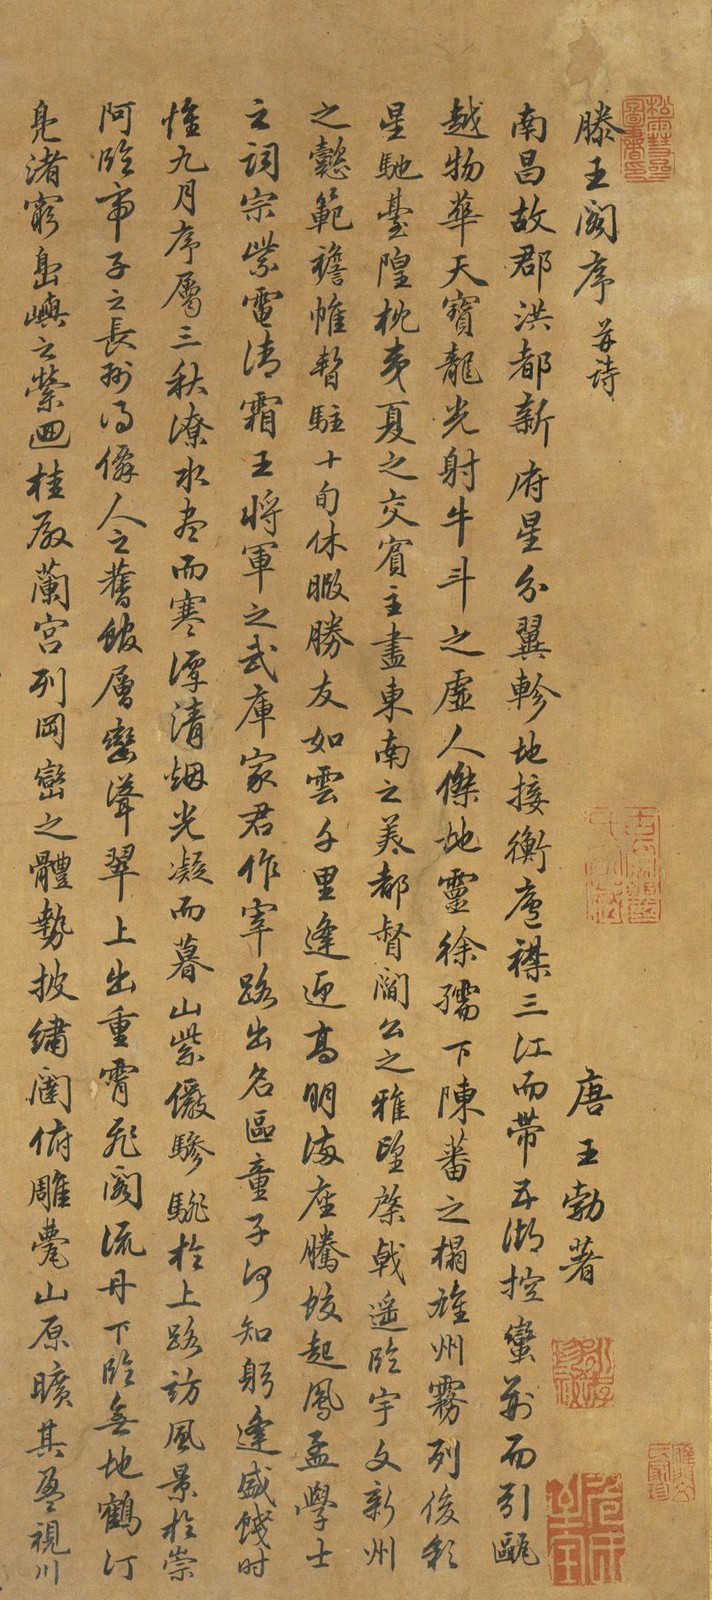 滕王閣序并詩 唐王勃著
南昌故郡洪都新府星分翼軫地接衡廬襟三江而帶五湖控蠻荊而引甌
越物華天寶龍光射牛斗之虛人傑地靈徐孺下陳蕃之榻雄州霧列俊彩
星馳臺隍枕夷夏之交賓主盡東南之美都督閻公之雅望棨戟遥臨宇文新州
之懿範襜帷暫駐十旬休暇勝友如雲千里逢迎高明滿座騰蛟起鳳孟學士
之詞宗紫電清霜王將軍之武庫家君作宰路出名區童子何知躬逢盛餞時
惟九月序屬三秋潦水盡而寒潭清烟光凝而暮山紫儼驂騑於上路訪風景於崇
阿臨帝子之長洲得僊人之舊館層巒聳翠上出重霄飛閣流丹下臨無地鶴汀
鳧渚窮島嶼之縈迴桂殿蘭宮列岡巒之體勢披繡闥俯雕甍山原曠其盈視川